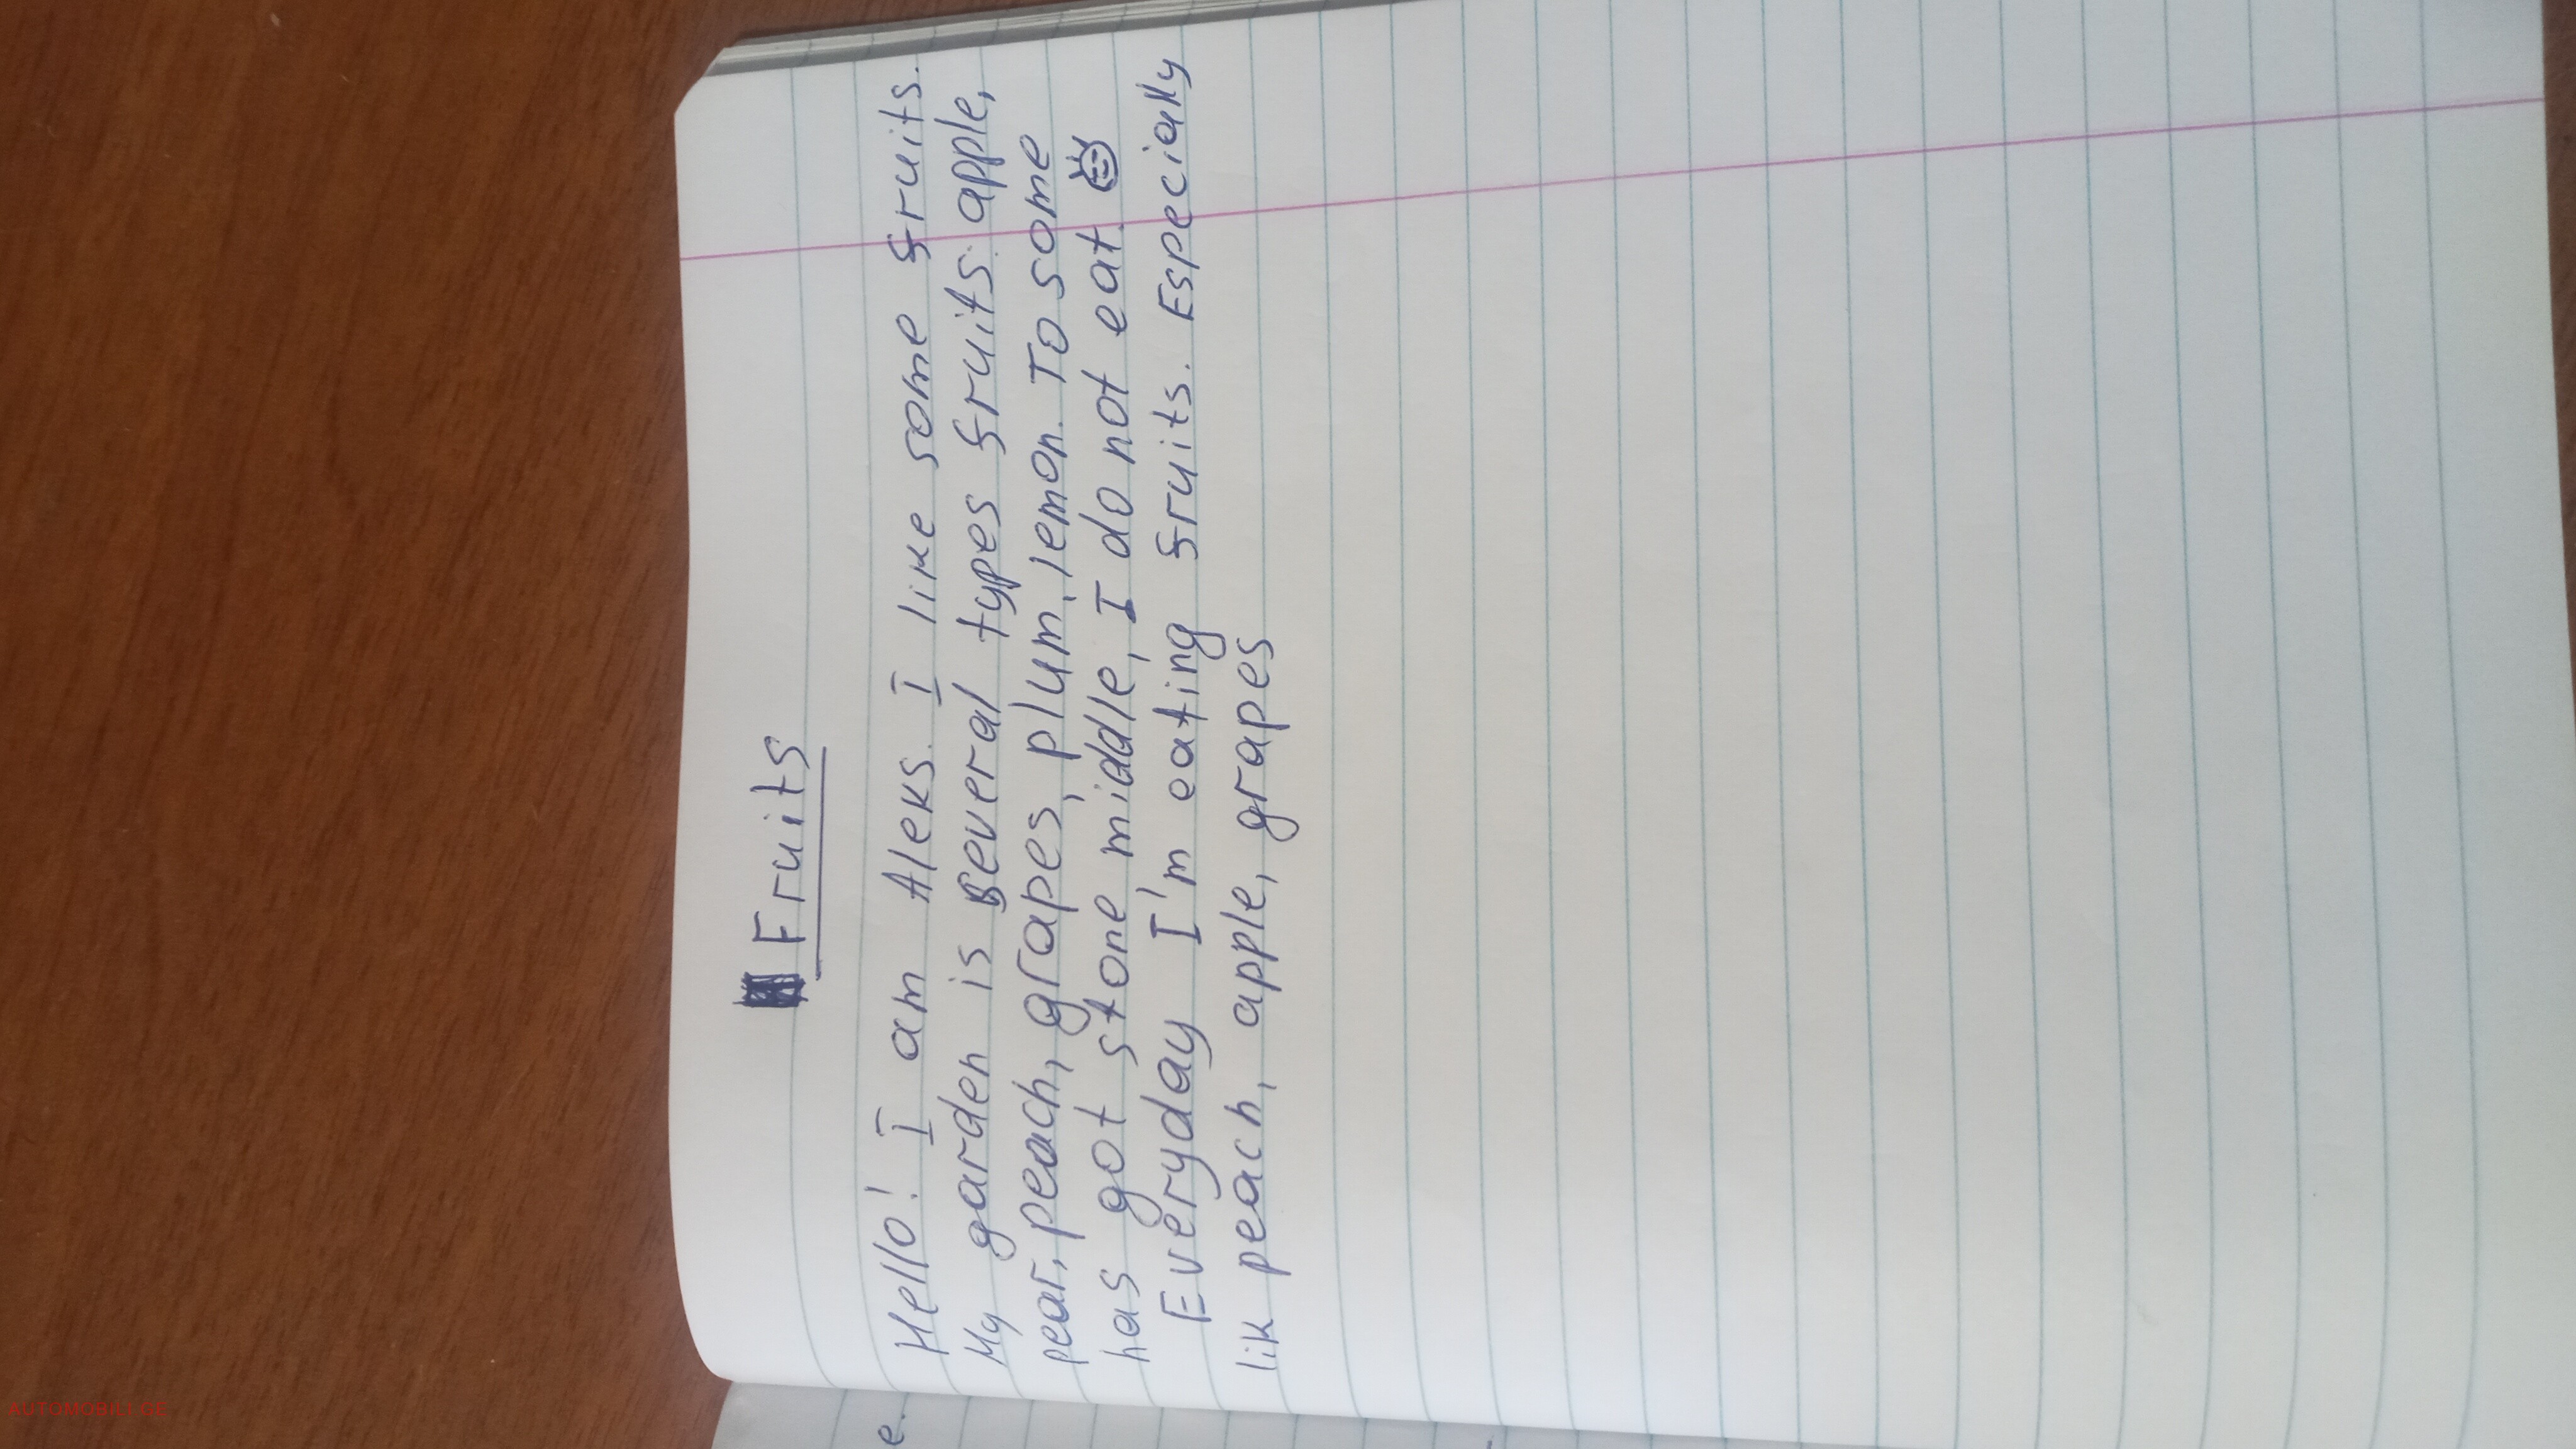 Fruits
Hello! I am Aleks. I like some fruits.
My garden is several types fruits: apple,
pear, peach, grapes, plum, lemon. To some
has got stone middle, I do not eat.
Everyday I'm eating fruits. Especially
lik peach, apple, grapes
e.
AUTOMOBILI.GE